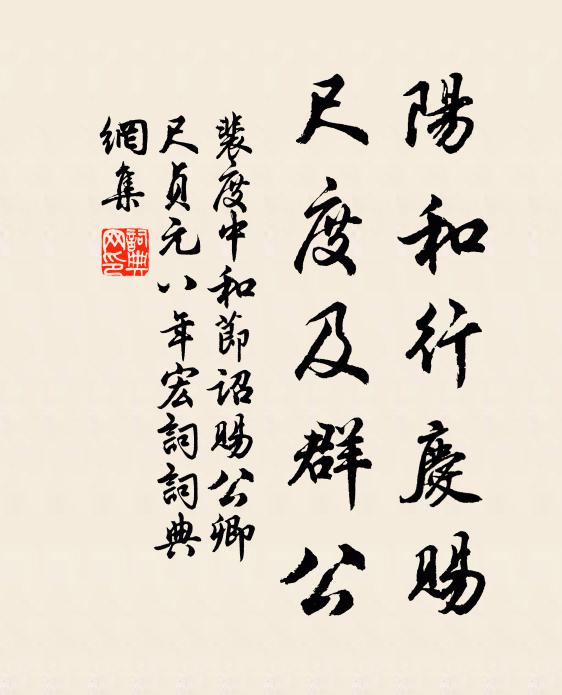 陽和行慶賜
尺度及群公
裴度中和節詔賜公卿
尺貞元八年宏詞詞典
網集
詞典網印